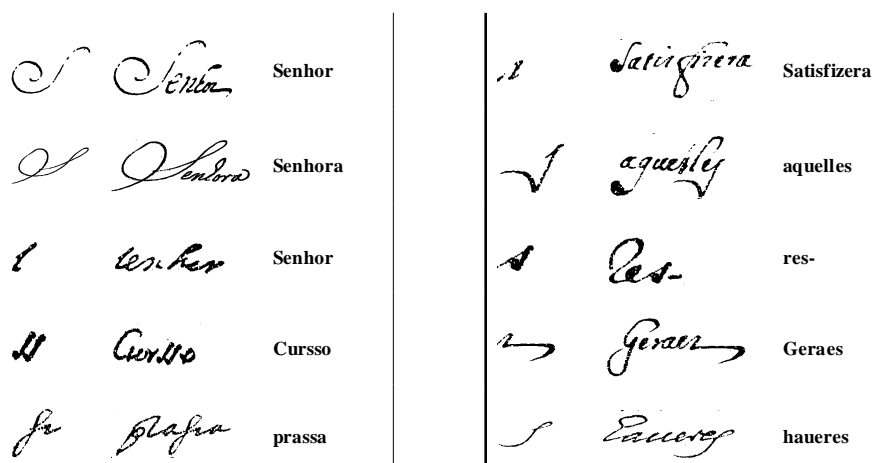 S Senhor Senhor
S Senhora Senhora
s senhor Senhor
ss Cursso Cursso
ss prassa prassa
s Satisfizera Satisfizera
s aquelles aquelles
s res- res-
s Geraes Geraes
s haueres haueres